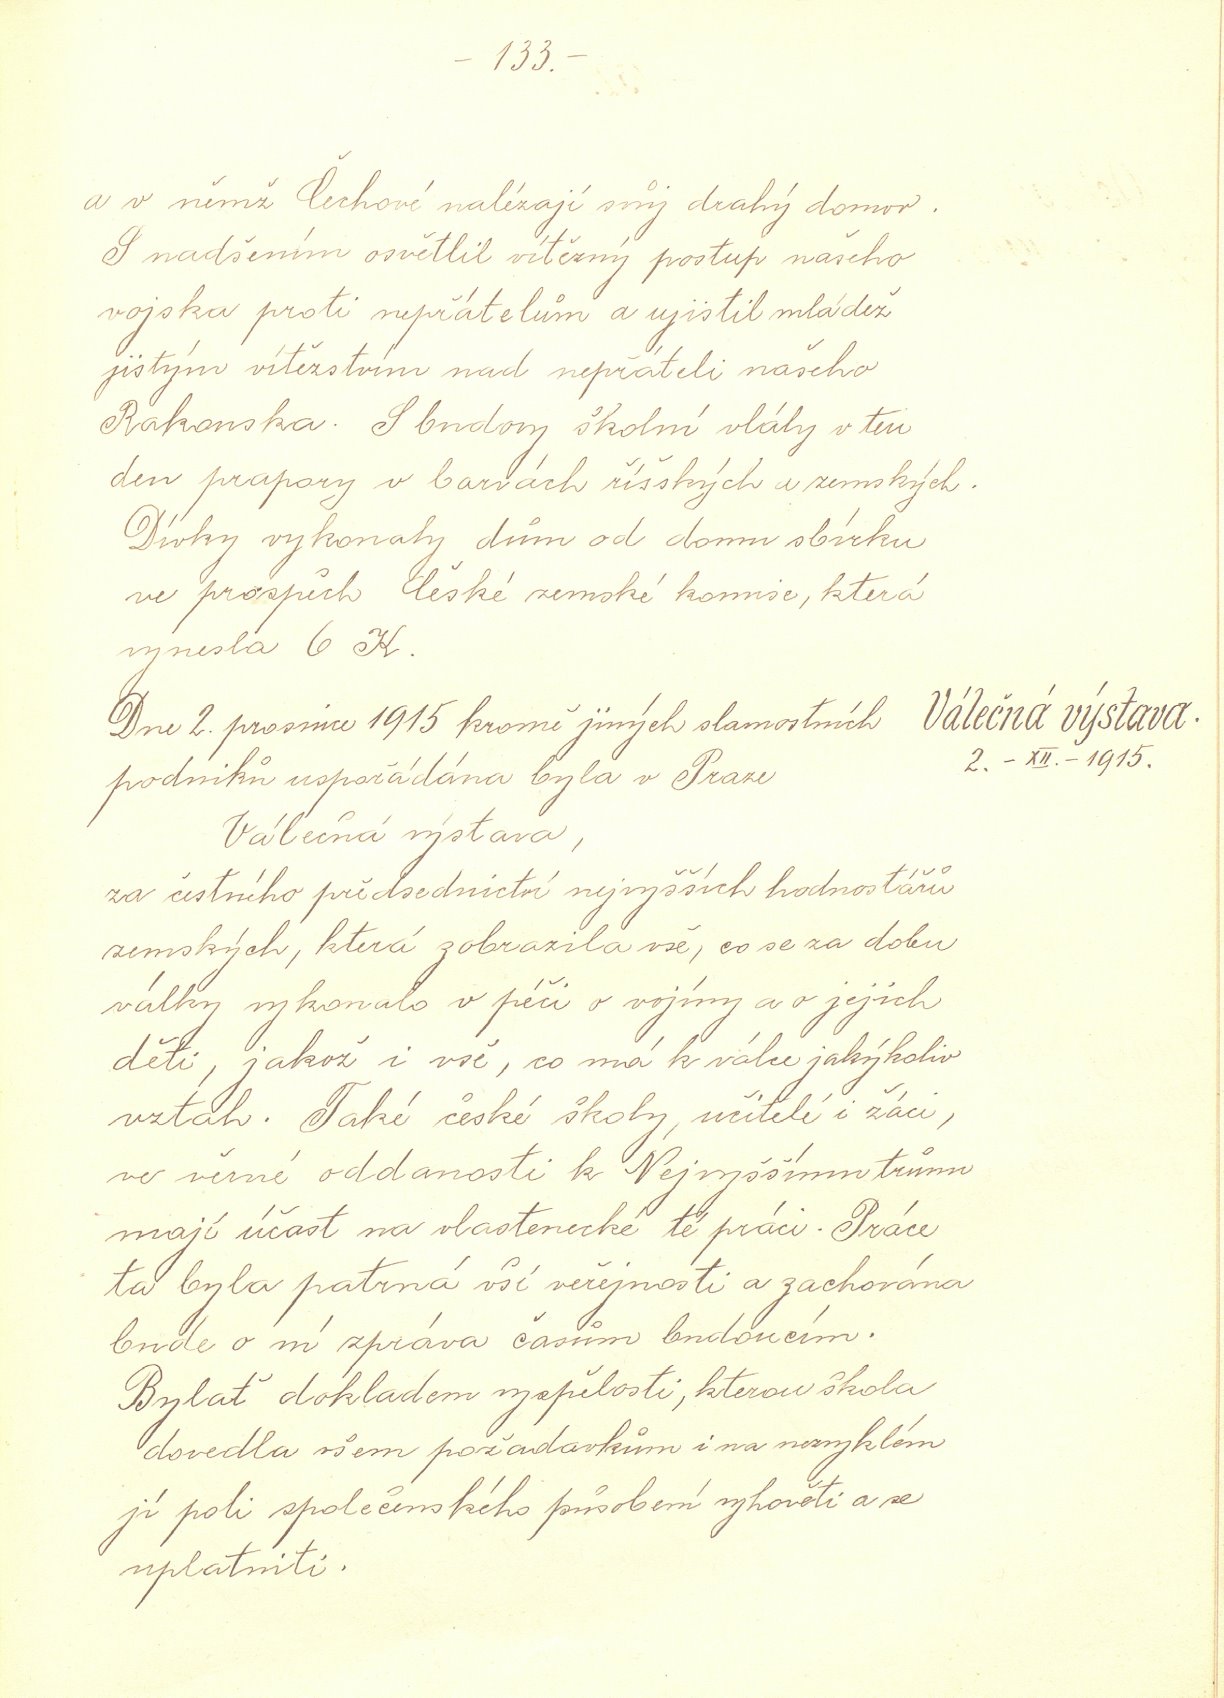 - 133. -
a v němž Čechové nalézají svůj drahý domov.
S nadšením osvětlil vítězný postup našeho
vojska proti nepřátelům a ujistil mládež
jistým vítězstvím nad nepřáteli našeho
Rakouska. S budovy školní vlály v ten
den prapory v barvách říšských a zemských.
Dívky vykonaly dům od domu sbírku
ve prospěch České zemské komise, která
vynesla 6 K.
Dne 2. prosince 1915 kromě jiných slamostních
podniků uspořádána byla v Praze
Válečná výstava.
2. - XII. - 1915.
Válečná výstava,
za čestného předsednictví nejvyšších hodnostářů
zemských, která zobrazila vše, co se za dobu
války vykonalo v péči o vojíny a o jejich
děti, jakož i vše, co má k válce jakýkoliv
vztah. Také české školy, učitelé i žáci,
ve věrné oddanosti k Nejvyššímu trůnu
mají účast na vlastenecké té práci. Práce
ta byla patrná vší veřejnosti a zachována
bude o ní zpráva časům budoucím.
Bylať dokladem vyspělosti, kterou škola
dovedla všem požadavkům i na nezvyklém
jí poli společenského působení vyhověti a se
uplatniti.